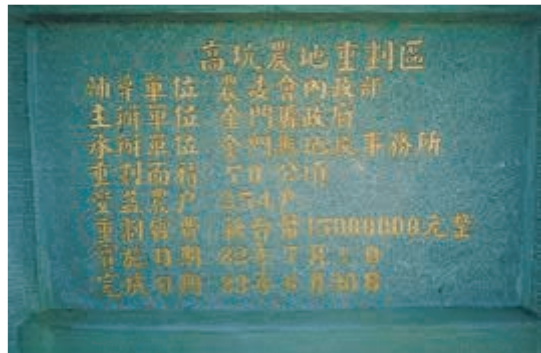 高坑農地重劃區
補助單位 農委會內政部
主辦單位 金門縣政府
承辦單位 金門縣地政事務所
重劃面積 70公頃
受益農戶
重劃經費 新台幣15000000元整
實施日期 82年7月1日
完成日期 83年6月30日